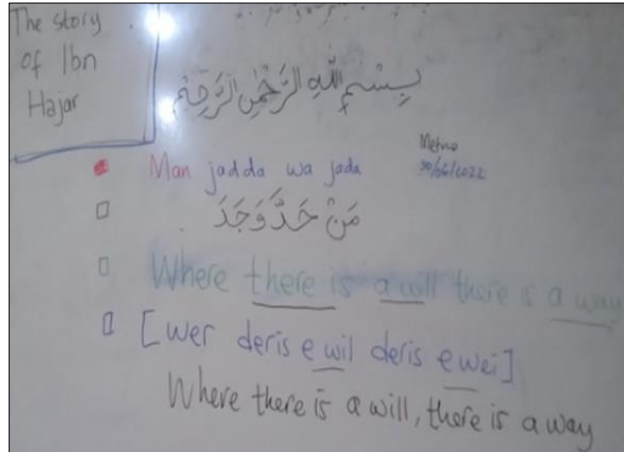 The story
of Ibn
Hajar
بِسْمِ اللّٰهِ الرَّحْمٰنِ الرَّحِيْمِ
Metro
30/06/2022
Man jadda wa jada
مَنْ جَدَّ وَجَدَ
Where there is a will there is a way
[wer deris e wil deris e wei]
Where there is a will, there is a way